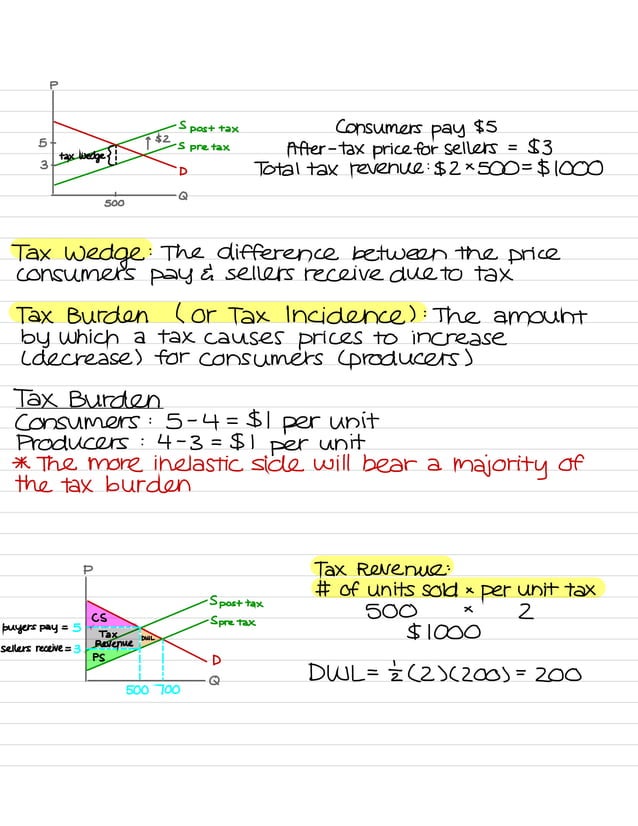 P
S post tax
↑ $2
S pre tax
5
tax wedge {
3
D
500
Q
Consumers pay $5
After-tax price for sellers = $3
Total tax revenue: $2 × 500 = $1000
Tax Wedge: The difference between the price
consumers pay & sellers receive due to tax
Tax Burden (or Tax Incidence): The amount
by which a tax causes prices to increase
(decrease) for consumers (producers)
Tax Burden
Consumers: 5-4 = $1 per unit
Producers: 4-3 = $1 per unit
* The more inelastic side will bear a majority of
the tax burden
P
S post tax
S pre tax
CS
buyers pay = 5
Tax
Revenue
DWL
sellers receive = 3
PS
D
Q
500 700
Tax Revenue:
# of units sold × per unit tax
500 × 2
$1000
DWL = ½(2)(200) = 200